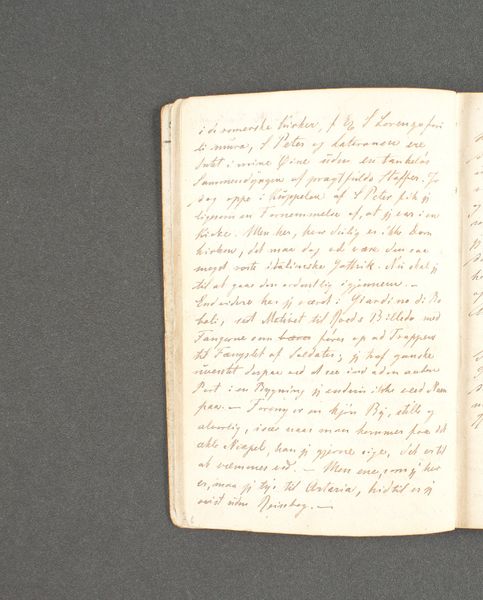 i de romerske Kirker, f. Ex. S Lorenzo fuori
li mura, S Peter og Lateranen ere
intet i mine Øine uden en tankeløs
Sammendyngen af pragtfulde Stoffer. Jo
dog oppe i Kuppelen af S Peter fik jeg
ligesom en Fornemmelse af, at jeg var i en
Kirke. Men her, hvor deilig er ikke Dom
kirken, det maa dog vel være den
meget roste italienske Gothik. Nu skal jeg
til at gaae den ordentlig igjennem. —
Endvidere har jeg været i Giardino di Bo
boli, set Motivet til Billede med
Fangerne som bæres føres op ad Trappen
til Fængslet af Soldater; jeg har ganske
uventet derpaa ved at see ind ad en anden
Port i en Bygning jeg endnu ikke veed Navn
paa. — Florenz er en kjøn By, stille og
alvorlig, især naar man kommer fra det
Neapel, kan jeg gjerne sige, det er til
at væmmes ved. — Men ene, som jeg her
er, maa jeg tye til hidtil er jeg
intet uden